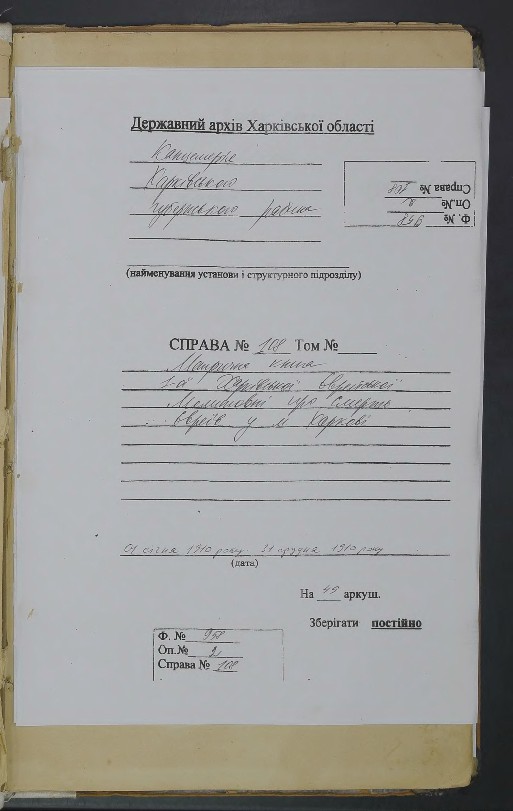 Державний архів Харківської області
Канцелярія
Харківського
губернського равина
Справа № 108
Оп.№ 2
Ф. № 958
(найменування установи і структурного підрозділу)
СПРАВА № 108 Том №
Метрична книга
1-ої Харківської Єврейської
Молитовні про смерть
євреїв у м Харкові
01 січня 1910 року - 31 грудня 1910 року
(дата)
На 49 аркуш.
Зберігати постійно
Ф. № 958
Оп.№ 2
Справа № 108